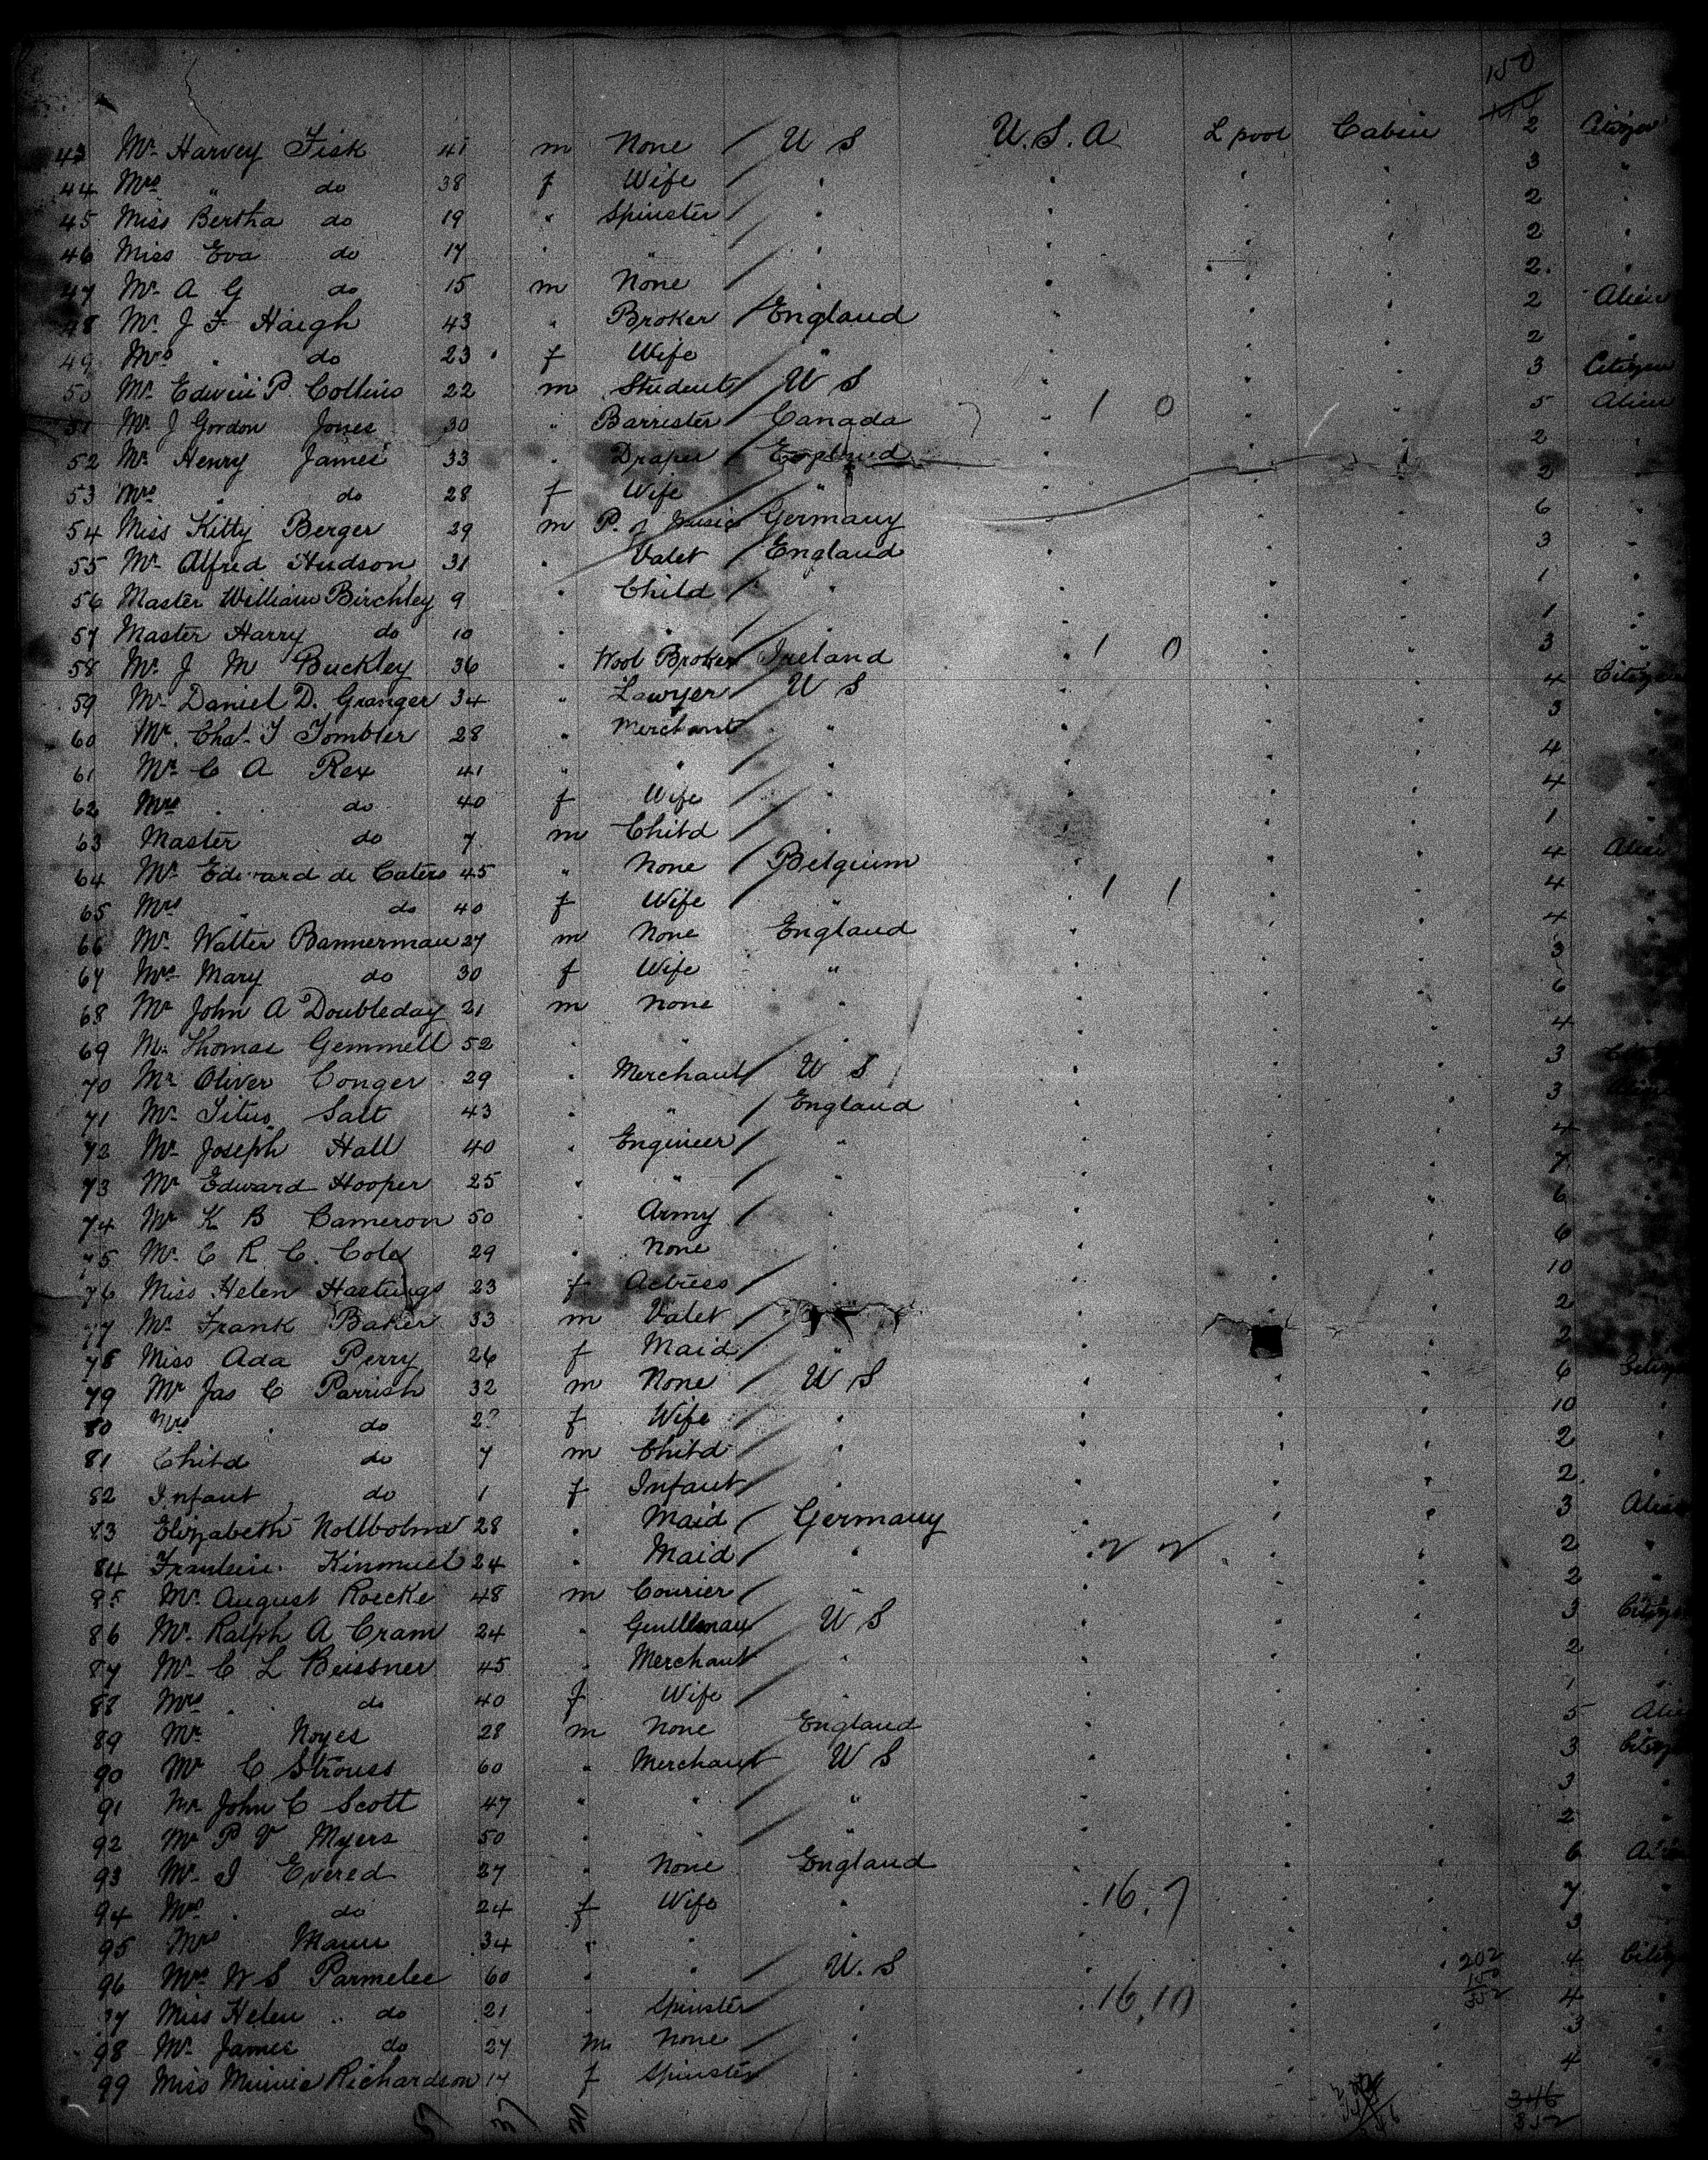 150
43 Mr Harvey Fisk 41 m None U S U. S. A L pool Cabin 2 Citizen
44 Mrs " do 38 f Wife " 3 "
45 Miss Bertha do 19 " Spinster " 2 "
46 Miss Eva do 17 " " " 2 "
47 Mr A G do 15 m None " 2 "
48 Mr J F Haigh 43 " Broker England 2 Alien
49 Mrs " do 23 f Wife " 2 "
50 Mr Edwin P. Collins 22 m Student U S 3 Citizen
51 Mr J Gordon Jones 30 " Barrister Canada 1 0 5 Alien
52 Mr Henry James 33 " Draper England 2 "
53 Mrs " do 28 f Wife " 2 "
54 Miss Kitty Berger 29 m P. of Music Germany 6 "
55 Mr Alfred Hudson 31 " Valet England 3 "
56 Master William Birchley 9 " Child " 1 "
57 Master Harry do 10 " " " 1 "
58 Mr J M Buckley 36 " Wool Broker Ireland 1 0 3 "
59 Mr Daniel D. Granger 34 " Lawyer U S 4 Citizen
60 Mr. Chas. T Tombler 28 " Merchant " 3 "
61 Mr C A Rex 41 " " " 4 "
62 Mrs " do 40 f Wife " 4 "
63 Master do 7 m Child " 1 "
64 Mr Edward de Caters 45 " None Belgium 4 Alien
65 Mrs " do 40 f Wife " 1 1 4 "
66 Mr Walter Bannerman 27 m None England 4 "
67 Mrs Mary do 30 f Wife " 3 "
68 Mr John A Doubleday 21 m None " 6 "
69 Mr Thomas Gemmell 52 " " " 4 "
70 Mr Oliver Conger 29 " Merchant U S 3
71 Mr Titus Salt 43 " " England 3
72 Mr Joseph Hall 40 " Engineer " 4
73 Mr Edward Hooper 25 " " " 7
74 Mr K B Cameron 50 " Army " 6
75 Mr C R C. Coley 29 " None " 6
76 Miss Helen Hastings 23 f Actress " 10
77 Mr Frank Baker 33 m Valet 2
78 Miss Ada Perry 26 f Maid " 2
79 Mr Jas C Parrish 32 m None U S 6 Citizen
80 Mrs " do f Wife " 10 "
81 Child do 7 m Child " 2 "
82 Infant do 1 f Infant " 2 "
83 Elizabeth 28 " Maid Germany 3 Alien
84 Fraulein Kinmuel 24 " Maid " 2 2 2 "
85 Mr August Roecke 48 m Courier " 2 "
86 Mr Ralph A Cram 24 " Gentleman U S 3 Citizen
87 Mr C L Beissner 45 " Merchant " 2 "
88 Mrs " do 40 f Wife " 1 "
89 Mr Noyes 28 m None England 5 Alien
90 Mr C Strouss 60 " Merchant U S 3 Citizen
91 Mr John C Scott 47 " " " 3 "
92 Mr P V Myers 50 " " " 2 "
93 Mr J Evered 27 " None England 6 Alien
94 Mrs " do 24 f Wife " 16. 7 7 "
95 Mrs Mann 34 " " 3
96 Mrs W S Parmelee 60 " " U. S 202 4 Citizen
150
352
97 Miss Helen do 21 " Spinster " 16. 10 4 "
98 Mr James do 27 m None " 3 "
99 Miss Minnie Richardson 14 f Spinster " 4 "
346
352